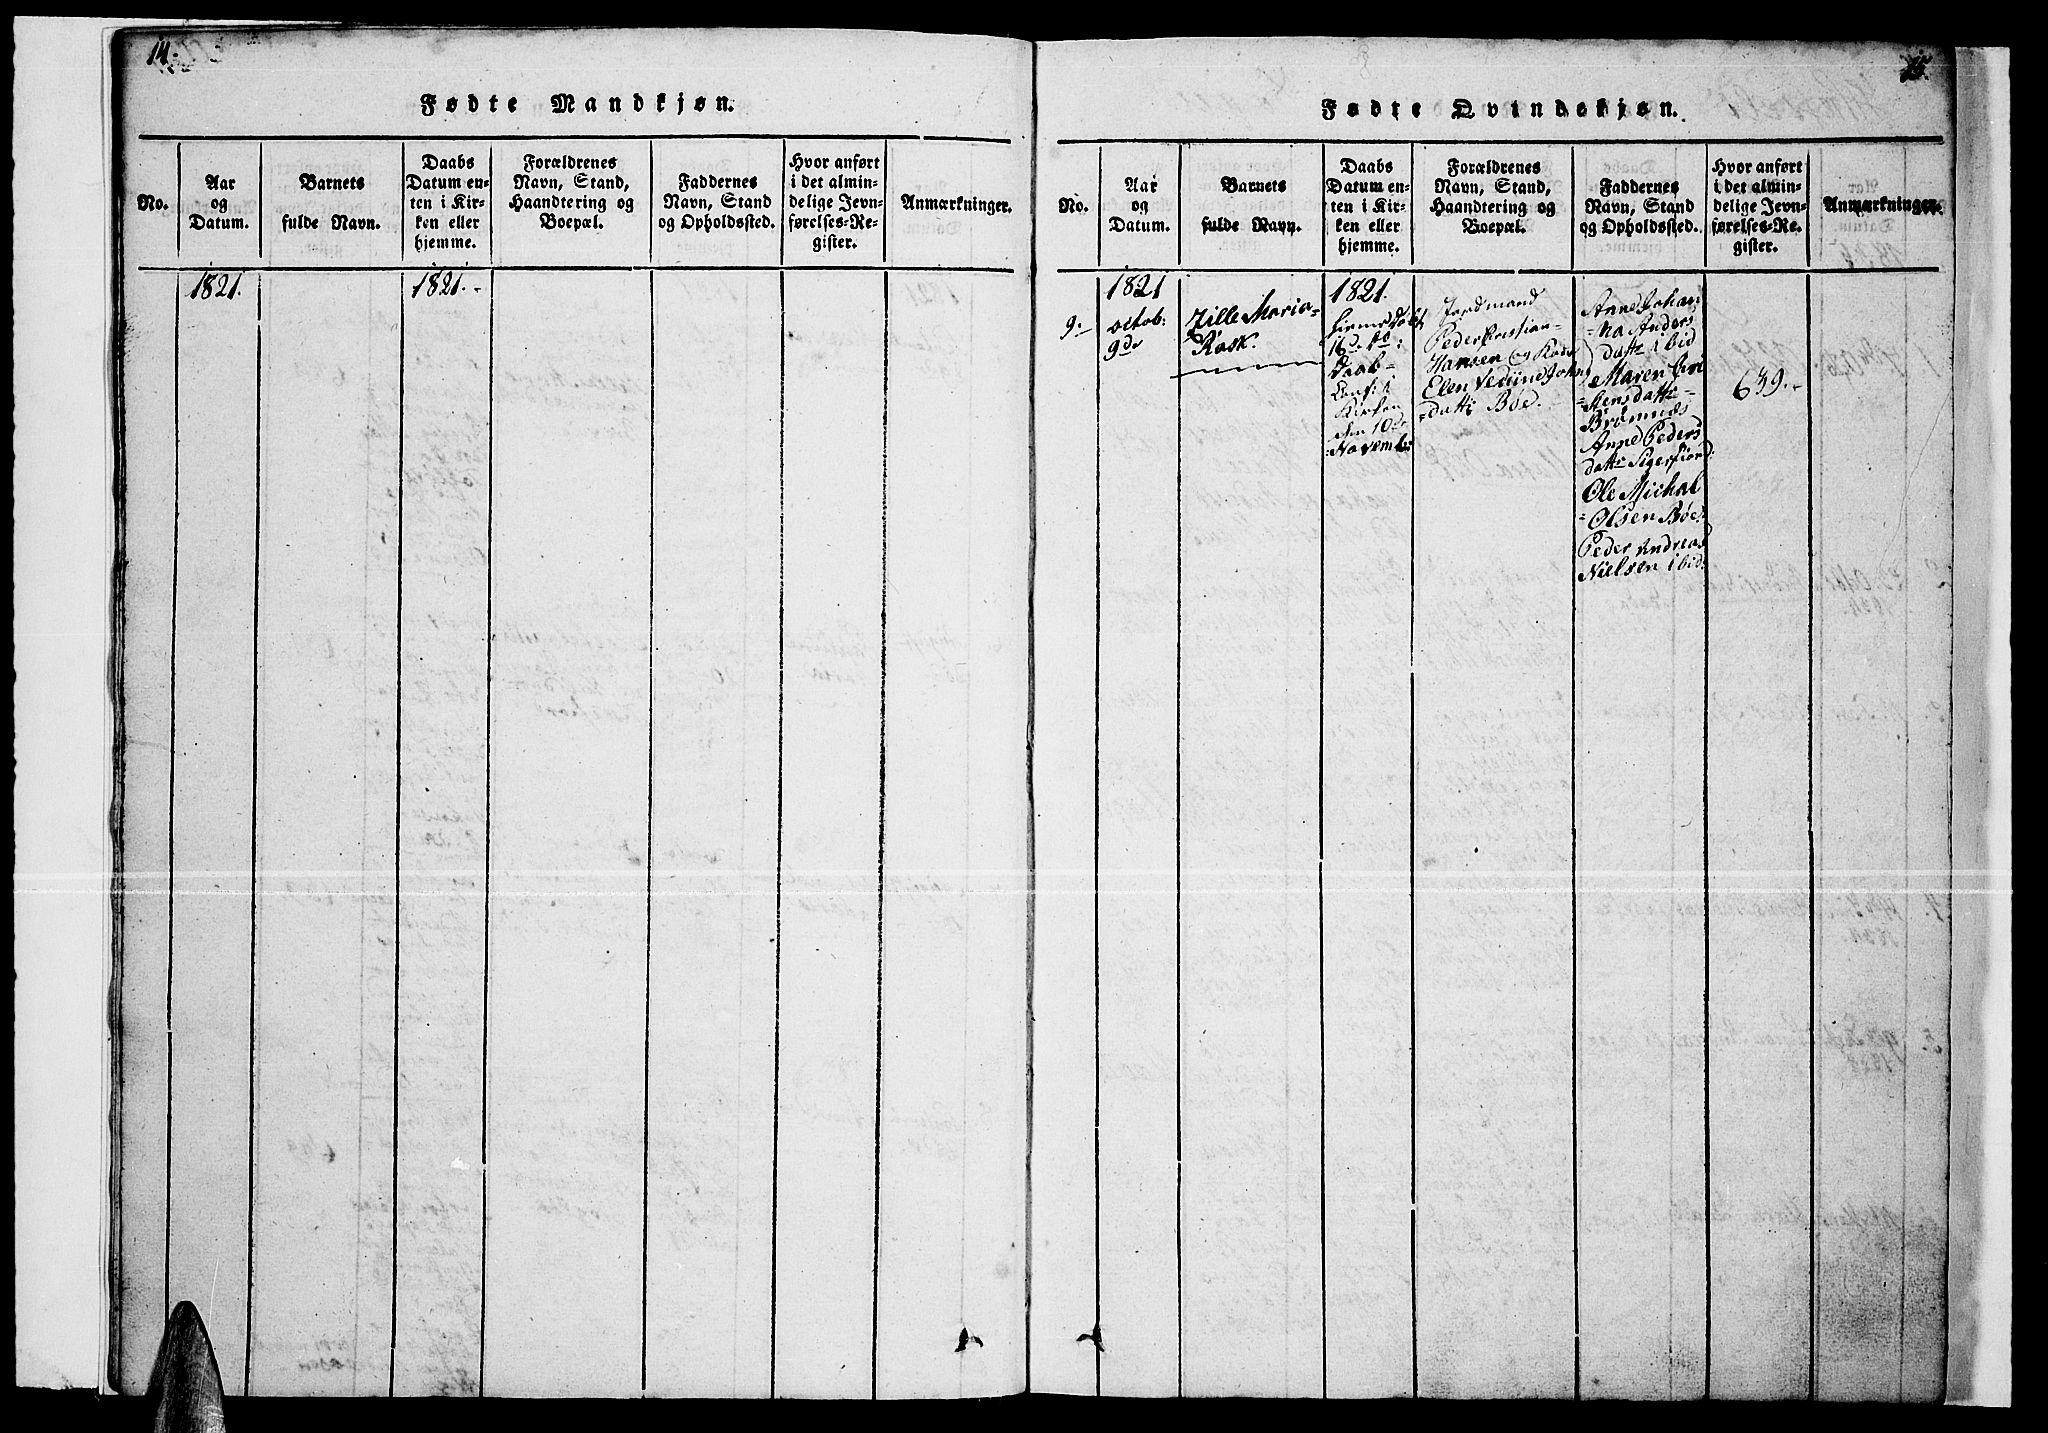 14.
Fødte Mandkjøn.
No.
Aar
og
Datum.
Barnets
fulde Navn.
Daabs
Datum en-
ten i Kir-
ken eller
hjemme.
Forældrenes
Navn, Stand,
Haandtering og
Boepæl.
Faddernes
Navn, Stand
og Opholdssted.
Hvor anført
i det almin-
delige Jevn-
førelses-Re-
gister.
Anmærkninger.
1821.
1821.-
15.
Fødte Qvindekjøn.
No.
Aar
og
Datum.
Barnets
fulde Navn.
Daabs
Datum en-
ten i Kir-
ken eller
hjemme.
Forældrenes
Navn, Stand,
Haandtering og
Boepæl.
Faddernes
Navn, Stand
og Opholdssted.
Hvor anført
i det almin-
delige Jevn-
førelses-Re-
gister.
Anmærkninger.
9.-
1821
octob:
9de
Zille Maria-
Rask.
1821.
hiemedøbt
16d
Daab-
Kirken
den 10de
Novemb:
Jordmand
Peder Cristian-
Hansen og Kone
Elen
datt: Bøe.
Anne Johan
=na Anders
datt: ibid
Maren Cri
=stensdatt:
Brømnæs
Anne Peders
datt: Sigerfiord:
Ole Michal
=Olsen Bøe:
Peder Andreas
Nielsen ibid:
639.-